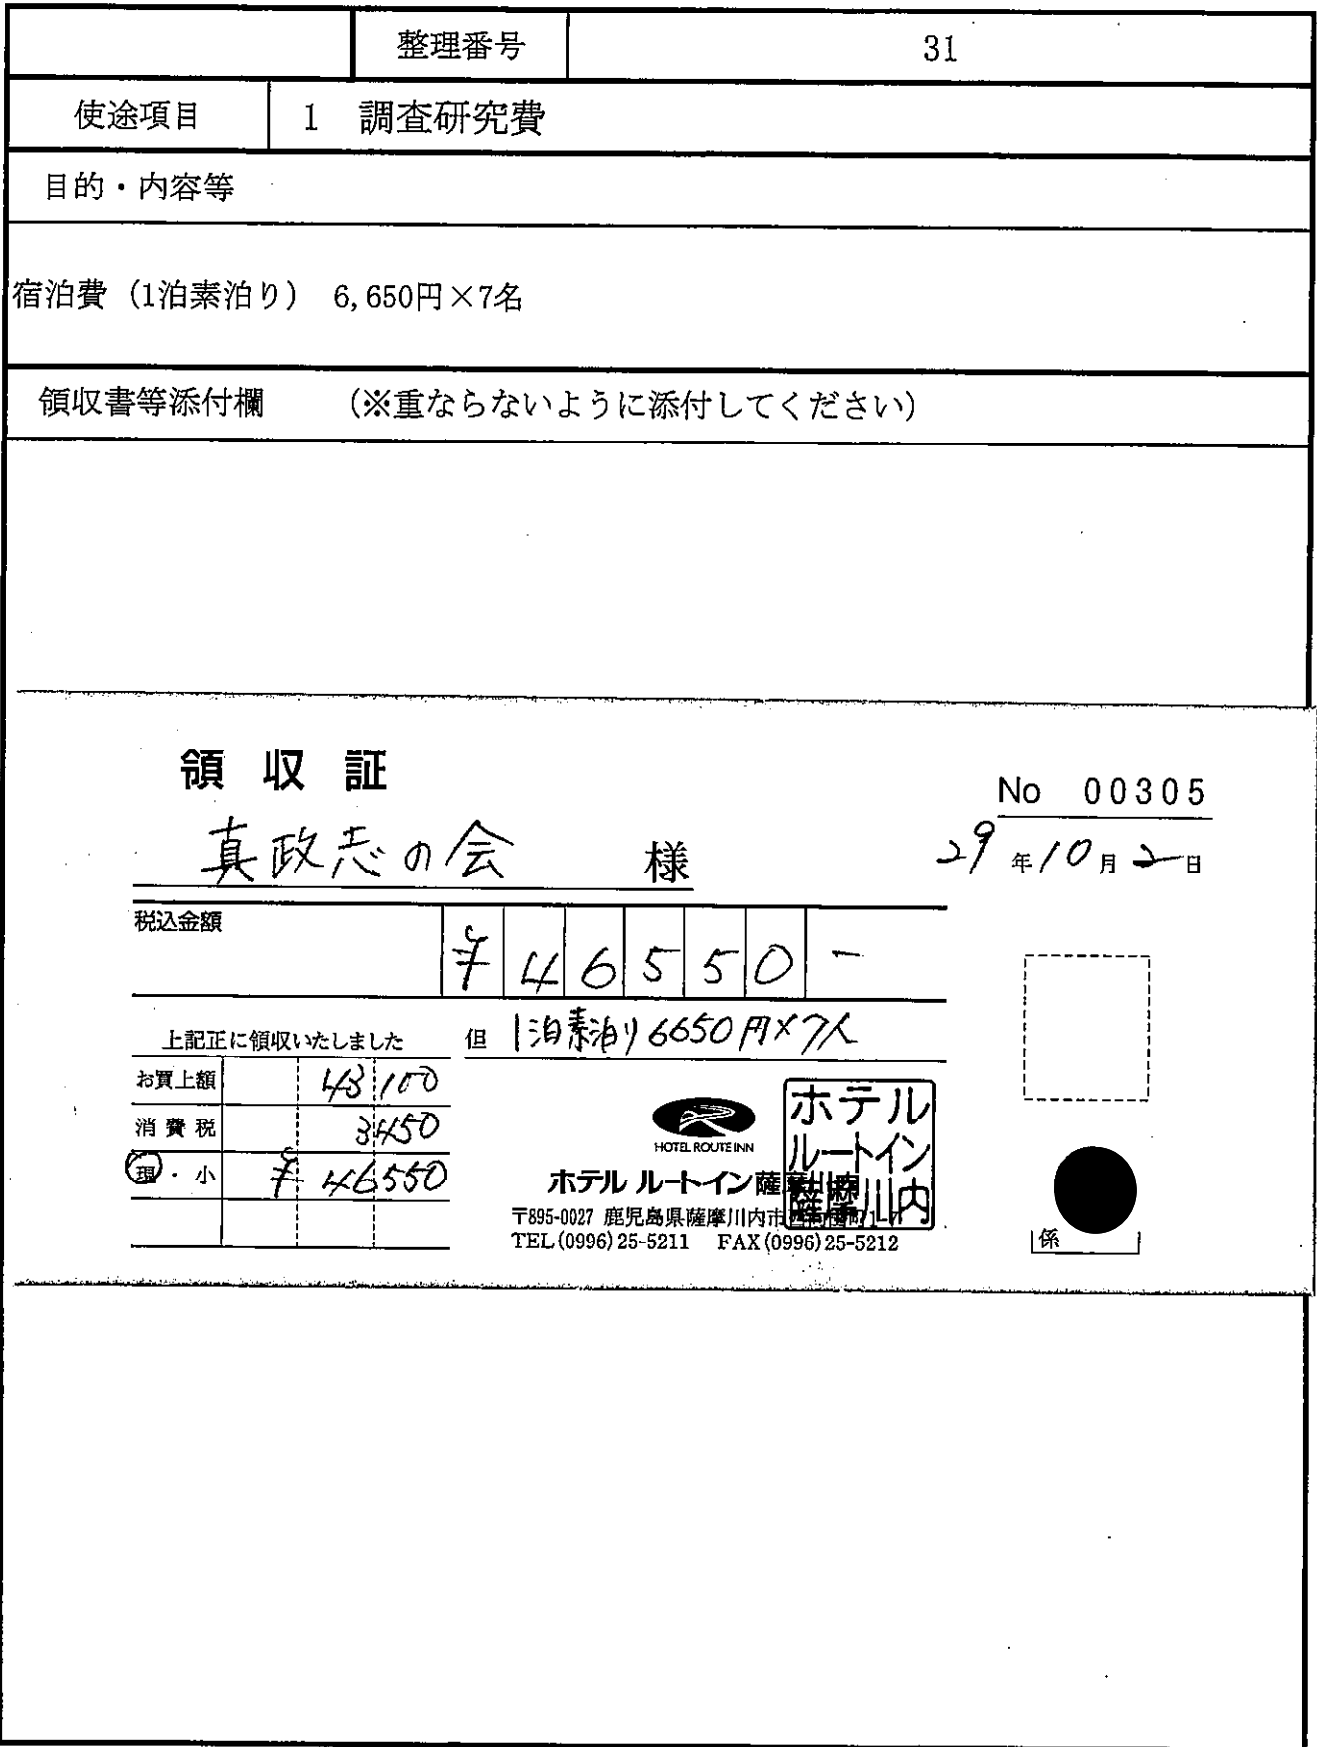 整理番号 31
使途項目 1 調査研究費
目的・内容等
宿泊費（1泊素泊り） 6,650円×7名
領収書等添付欄 （※重ならないように添付してください）
領収証
No 00305
真政志の会 様
29年10月2日
税込金額 ¥46550-
上記正に領収いたしました
但 1泊素泊り6650円×7人
お買上額 43100
消費税 3450
現・小 ¥46550
HOTEL ROUTE INN
ホテル ルートイン薩摩川内
ホテル
ルートイン
薩摩川内
〒895-0027 鹿児島県薩摩川内市
TEL(0996)25-5211 FAX(0996)25-5212
係